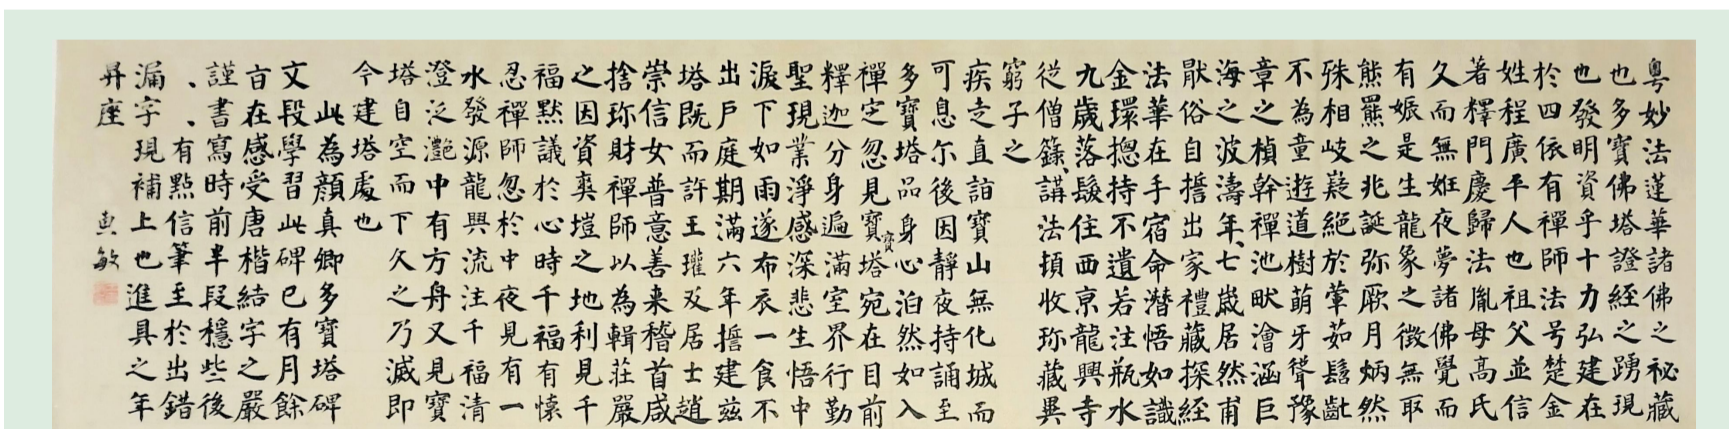 粵妙法蓮華諸佛之祕藏
也多寶佛塔證經之踴現
也發明資乎十力弘建在
於四依有禪師法号楚金
姓程廣平人也祖父並信
著釋門慶歸法胤母高氏
久而無姙夜夢諸佛覺而
有娠是生龍象之徵無取
熊羆之兆誕弥厥月炳然
殊相岐嶷絕於葷茹髫齔
不為童遊道樹萌牙聳豫
章之楨幹禪池畎澮涵巨
海之波濤年、七歲居然甫
猒俗自誓出家禮藏探經
法華在手宿命潛悟如識
金環揔持不遺若注瓶水
九歲落髮住西京龍興寺
從僧籙、講法頓收珎藏異
窮子之
疾走直詣寶山無化城而
可息尔後因靜夜持誦至
多寶塔品身心泊然如入
禪定忽見寶塔宛在目前
寶
釋迦分身遍滿室界行勤
聖現業淨感深悲生悟中
淚下如雨遂布衣一食不
出戶庭期滿六年誓建茲
塔既而許王瓘及居士趙
崇信女普意善来稽首咸
捨珎財禪師以為輯莊嚴
之因資爽塏之地利見千
福默議於心時千福有懷
忍禪師忽於中夜見有一
水發源龍興流注千福清
澄泛灩中有方舟又見寶
塔自空而下久之乃滅即
今建塔處也
此為顏真卿多寶塔碑
文段學習此碑已有月餘
旨在感受唐楷結字之嚴
謹書寫時前半段穩些後
、、有點信筆至於出錯
漏字現補上也進具之年
昇座
敏